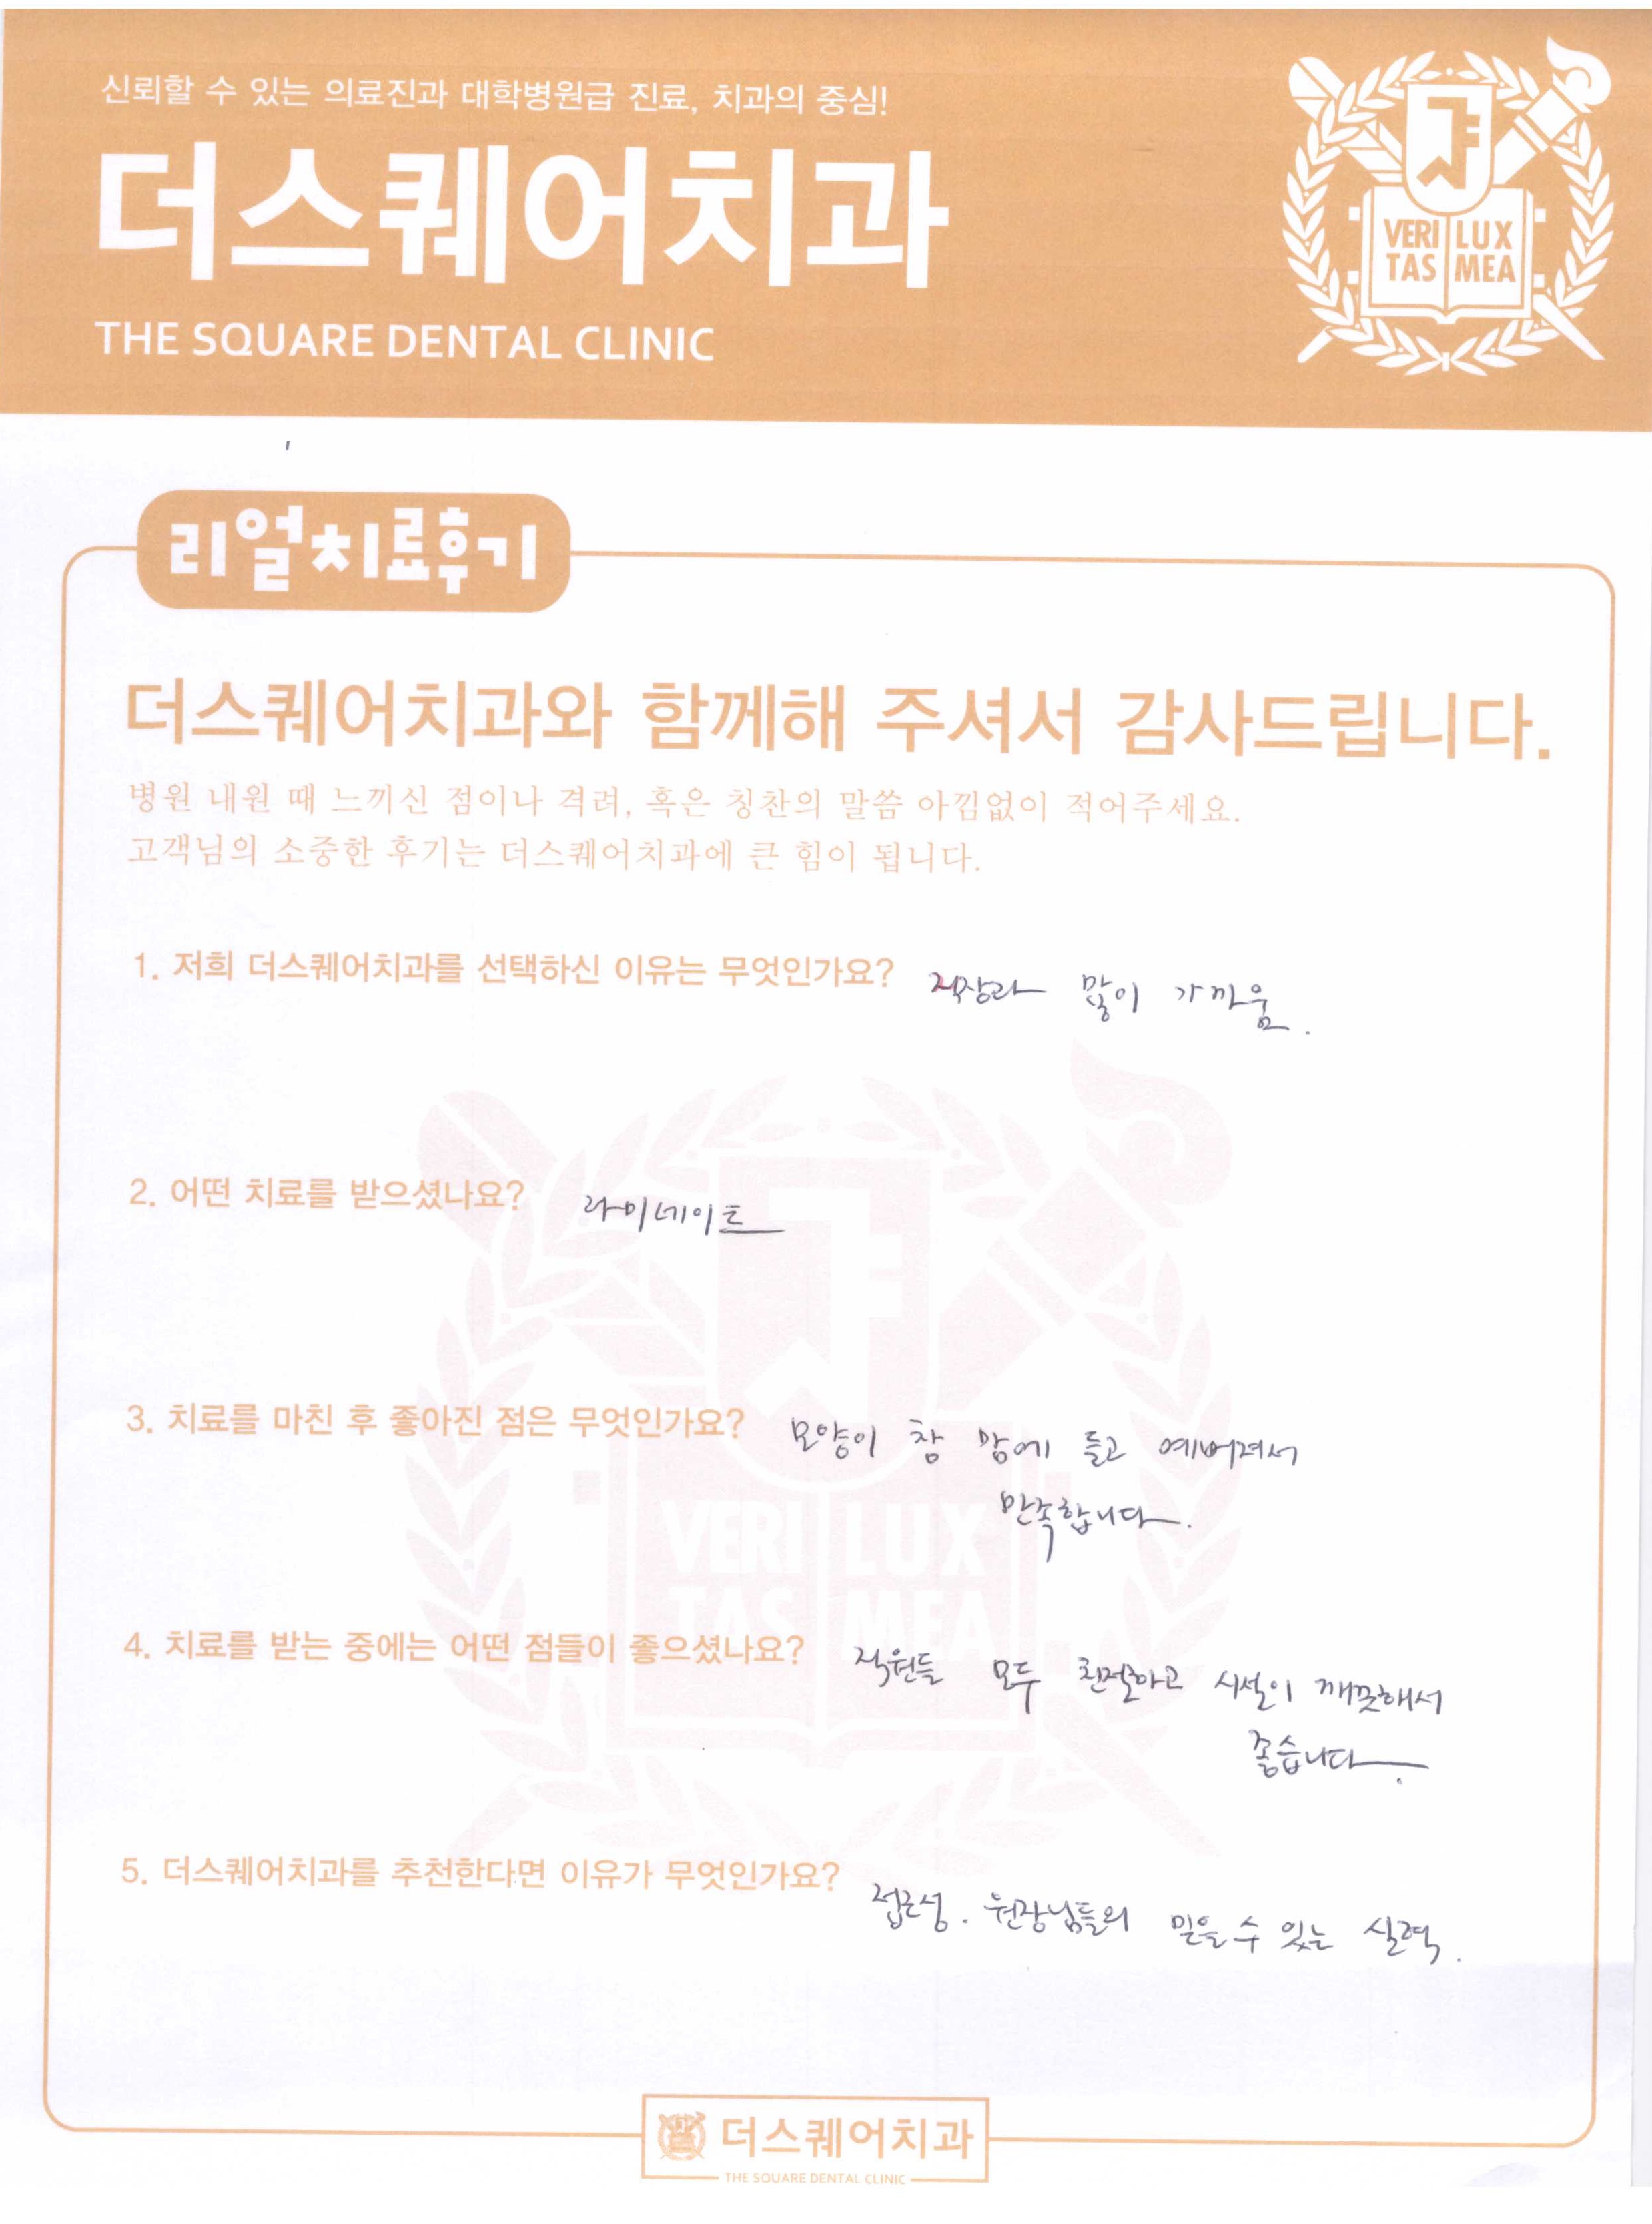 신뢰할 수 있는 의료진과 대학병원급 진료, 치과의 중심!
더스퀘어치과
THE SQUARE DENTAL CLINIC
VERI LUX
TAS MEA
리얼치료후기
더스퀘어치과와 함께해 주셔서 감사드립니다.
병원 내원 때 느끼신 점이나 격려, 혹은 칭찬의 말씀 아낌없이 적어주세요.
고객님의 소중한 후기는 더스퀘어치과에 큰 힘이 됩니다.
1. 저희 더스퀘어치과를 선택하신 이유는 무엇인가요? 직장과 많이 가까움.
2. 어떤 치료를 받으셨나요? 라미네이트
3. 치료를 마친 후 좋아진 점은 무엇인가요? 모양이 참 맘에 들고 예뻐져서
만족합니다.
VERI LUX
TAS MEA
4. 치료를 받는 중에는 어떤 점들이 좋으셨나요? 직원들 모두 친절하고 시설이 깨끗해서
좋습니다.
5. 더스퀘어치과를 추천한다면 이유가 무엇인가요? 접근성. 원장님들의 믿을 수 있는 실력.
더스퀘어치과
THE SQUARE DENTAL CLINIC